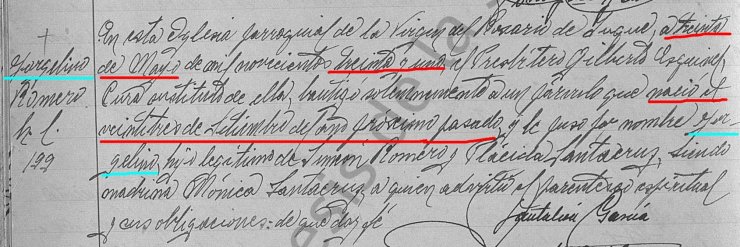 En esta Iglesia parroquial de la Virgen del Rosario de Luque, a treinta
de Mayo de mil novecientos treinta y uno, el Presbítero Gilberto Esquivel,
Cura sustituto de ella, bautizó solemnemente a un párvulo que nació el
veintitres de Setiembre del año próximo pasado, y le puso por nombre Jor
gelino, hijo legítimo de Simón Romero y Plácida Santacruz, siendo
madrina Mónica Santacruz, a quien advertí el parentesco espiritual
y sus obligaciones: de que doy fé
Jorgelino
Romero
h. l.
199